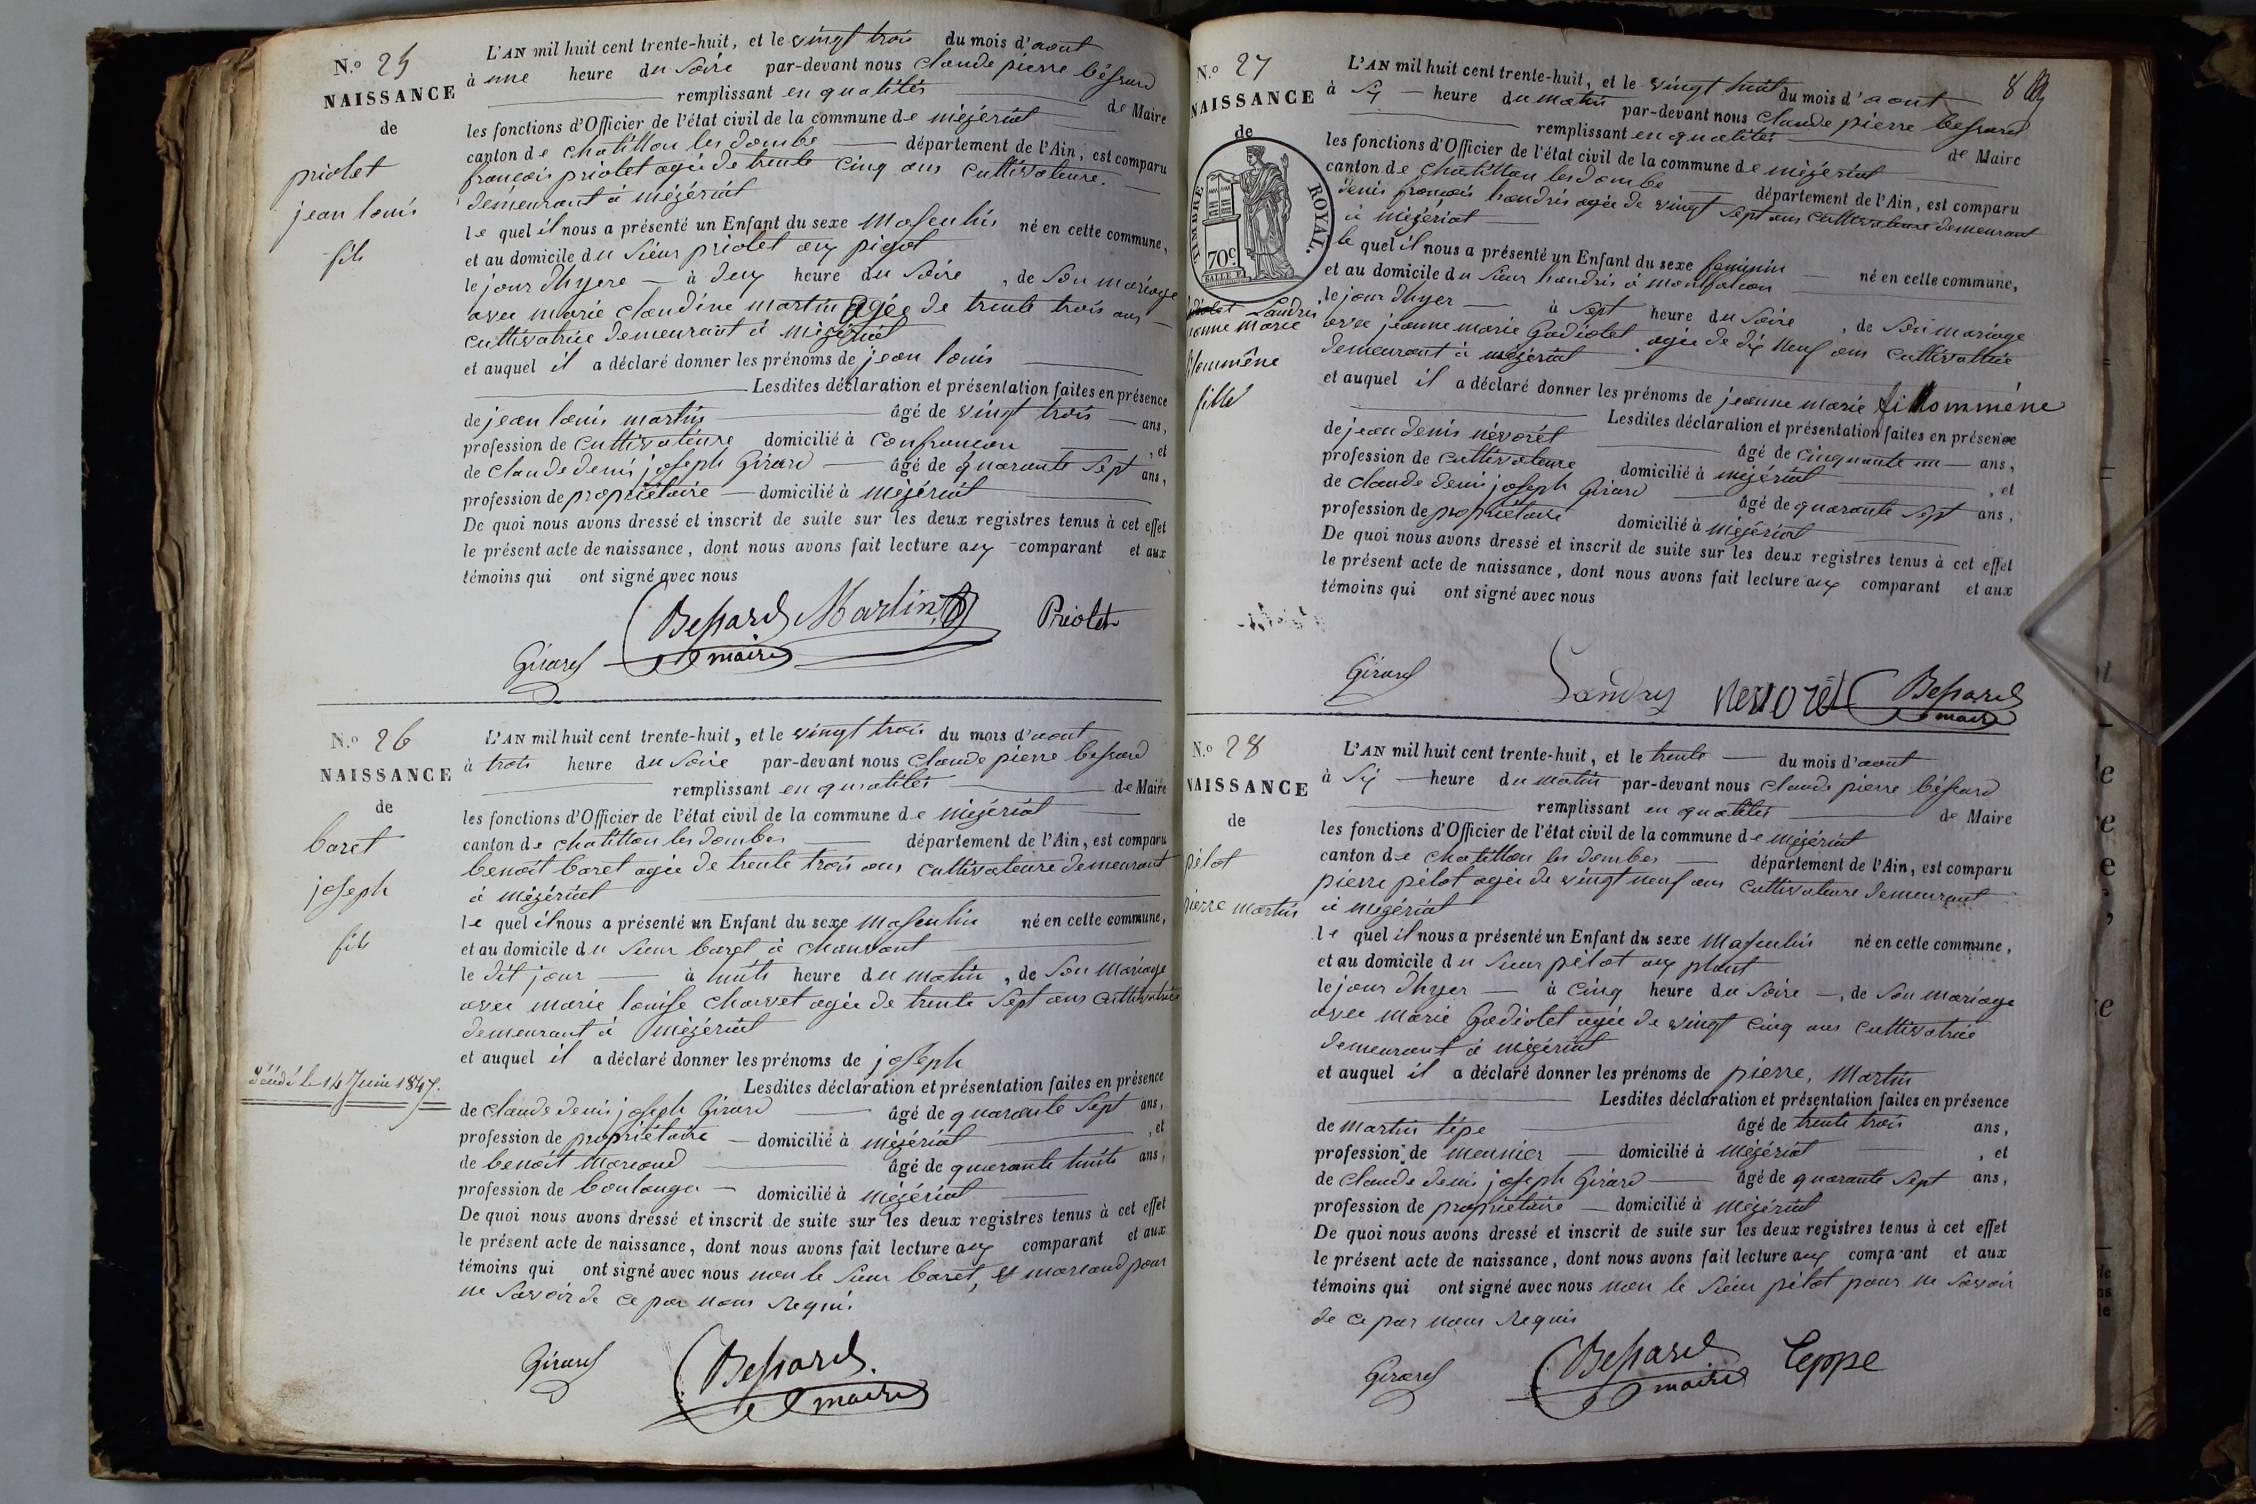 N.º 25
NAISSANCE
de
priolet
jean louis
fils
L'AN mil huit cent trente-huit, et le vingt trois du mois d'aout
à une heure du soire par-devant nous claude pierre béssard
remplissant en qualités de Maire
les fonctions d'Officier de l'état civil de la commune de mézériat
canton de chatillon les dombe département de l'Ain, est comparu
françois priolet agée de trente cinq ans cultivateure
demeurant à mézériat
le quel il nous a présenté un Enfant du sexe masculin né en cette commune,
et au domicile du sieur priolet aux pigot
le jour dhyere à deux heure du soire, de son mariage
avec marie claudine martin agée de trente trois ans
cultivatrice demeurant à mézériat
et auquel il a déclaré donner les prénoms de jean louis
Lesdites déclaration et présentation faites en présence
de jean louis martin âgé de vingt trois ans,
profession de cultivateure domicilié à confrancon, et
de claude denis joseph Girard âgé de quarante sept ans,
profession de propriétaire domicilié à mézériat
De quoi nous avons dressé et inscrit de suite sur les deux registres tenus à cet effet
le présent acte de naissance, dont nous avons fait lecture aux comparant et aux
témoins qui ont signé avec nous
Bessard Martin Priolet
Girard maire
N.º 26
NAISSANCE
de
baret
joseph
fils
L'AN mil huit cent trente-huit, et le vingt trois du mois d'aout
à trois heure du soire par-devant nous claude pierre bessard
remplissant en qualités de Maire
les fonctions d'Officier de l'état civil de la commune de mézériat
canton de chatillon les dombes département de l'Ain, est comparu
benoit baret agée de trente trois ans cultivateure demeurant
à mézériat
le quel il nous a présenté un Enfant du sexe masculin né en cette commune,
et au domicile du sieur baret à chanvant
le dit jour à huits heure du matin, de son mariage
avec marie louise charvet agée de trente sept ans cultivatrice
demeurant à mézériat
et auquel il a déclaré donner les prénoms de joseph
le 14 Juin 1847.
Lesdites déclaration et présentation faites en présence
de claude denis joseph Girard âgé de quarante sept ans,
profession de propriétaire domicilié à mézériat, et
de benoit marcand âgé de quarante huits ans,
profession de boulanger domicilié à mézériat
De quoi nous avons dressé et inscrit de suite sur les deux registres tenus à cet effet
le présent acte de naissance, dont nous avons fait lecture aux comparant et aux
témoins qui ont signé avec nous non le sieur baret, et marcand pour
ne savoir de ce par nous requis
Girard Bessard
maire
N.º 27
NAISSANCE
de
TIMBRE ROYAL.
70c.
Landris
jeanne marie
filommène
fille
8
L'AN mil huit cent trente-huit, et le vingt huit du mois d'aout
à six heure du matin par-devant nous claude pierre bessard
remplissant en qualités de Maire
les fonctions d'Officier de l'état civil de la commune de mézériat
canton de chatillon les dombe département de l'Ain, est comparu
denis françois landris agée de vingt sept ans cultivateure demeurant
à mézériat
le quel il nous a présenté un Enfant du sexe feminin né en cette commune,
et au domicile du sieur landris à monfalcon
le jour dhyer à sept heure du soire, de son mariage
avec jeanne marie Gadiolet agée de dix neuf ans cultivatrice
demeurant à mézériat
et auquel il a déclaré donner les prénoms de jeanne marie filommène
Lesdites déclaration et présentation faites en présence
de jean denis névorét âgé de cinquante un ans,
profession de cultivateure domicilié à mézériat, et
de claude denis joseph Girard âgé de quarante sept ans,
profession de propriétaire domicilié à mézériat
De quoi nous avons dressé et inscrit de suite sur les deux registres tenus à cet effet
le présent acte de naissance, dont nous avons fait lecture aux comparant et aux
témoins qui ont signé avec nous
Girard Landry Nevorét Bessard
maire
N.º 28
NAISSANCE
de
pélot
pierre martin
L'AN mil huit cent trente-huit, et le trente du mois d'aout
à six heure du matin par-devant nous claude pierre béssard
remplissant en qualités de Maire
les fonctions d'Officier de l'état civil de la commune de mézériat
canton de chatillon les dombes département de l'Ain, est comparu
pierre pélot agée de vingt neuf ans cultivateure demeurant
à mézériat
le quel il nous a présenté un Enfant du sexe masculin né en cette commune,
et au domicile du sieur pélot aux plant
le jour dhyer à cinq heure du soire, de son mariage
avec marie Gadiolet agée de vingt cinq ans cultivatrice
demeurant à mézériat
et auquel il a déclaré donner les prénoms de pierre, martin
Lesdites déclaration et présentation faites en présence
de martin tépe âgé de trente trois ans,
profession de meunier domicilié à mézériat, et
de claude denis joseph Girard âgé de quarante sept ans,
profession de propriétaire domicilié à mézériat
De quoi nous avons dressé et inscrit de suite sur les deux registres tenus à cet effet
le présent acte de naissance, dont nous avons fait lecture aux comparant et aux
témoins qui ont signé avec nous non le sieur pélot pour ne savoir
de ce par nous requis
Girard Bessard Teppe
maire